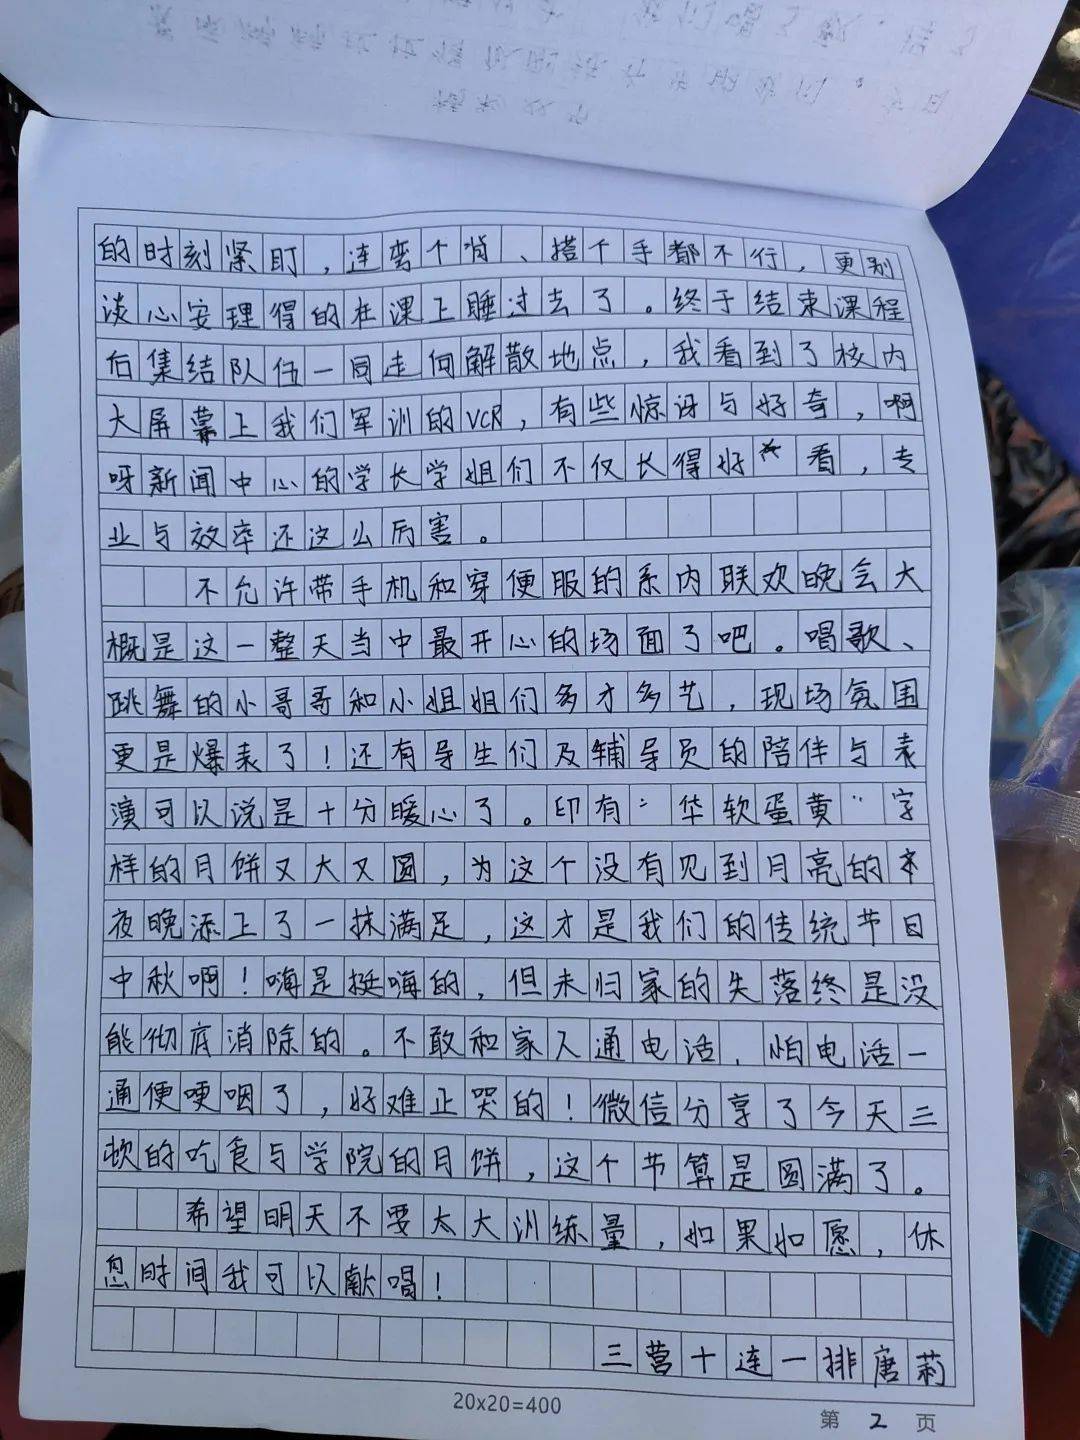 的时刻紧盯，连弯个背、搭个手都不行，更别
谈心安理得的在课上睡过去了。终于结束课程
后集结队伍一同走向解散地点，我看到了校内
大屏幕上我们军训的VCR，有些惊讶与好奇，啊
呀新闻中心的学长学姐们不仅长得好看，专
业与效率还这么厉害。
不允许带手机和穿便服的系内联欢晚会大
概是这一整天当中最开心的场面了吧。唱歌、
跳舞的小哥哥和小姐姐们多才多艺，现场氛围
更是爆表了！还有导生们及辅导员的陪伴与表
演可以说是十分暖心了。印有“华软蛋黄”字
样的月饼又大又圆，为这个没有见到月亮的
夜晚添上了一抹满足，这才是我们的传统节日
中秋啊！嗨是挺嗨的，但未归家的失落终是没
能彻底消除的。不敢和家人通电话，怕电话一
通便哽咽了，好难止哭的！微信分享了今天三
顿的吃食与学院的月饼，这个节算是圆满了。
希望明天不要太大训练量，如果如愿，休
息时间我可以献唱！
三营十连一排唐莉
20x20=400
第 2 页